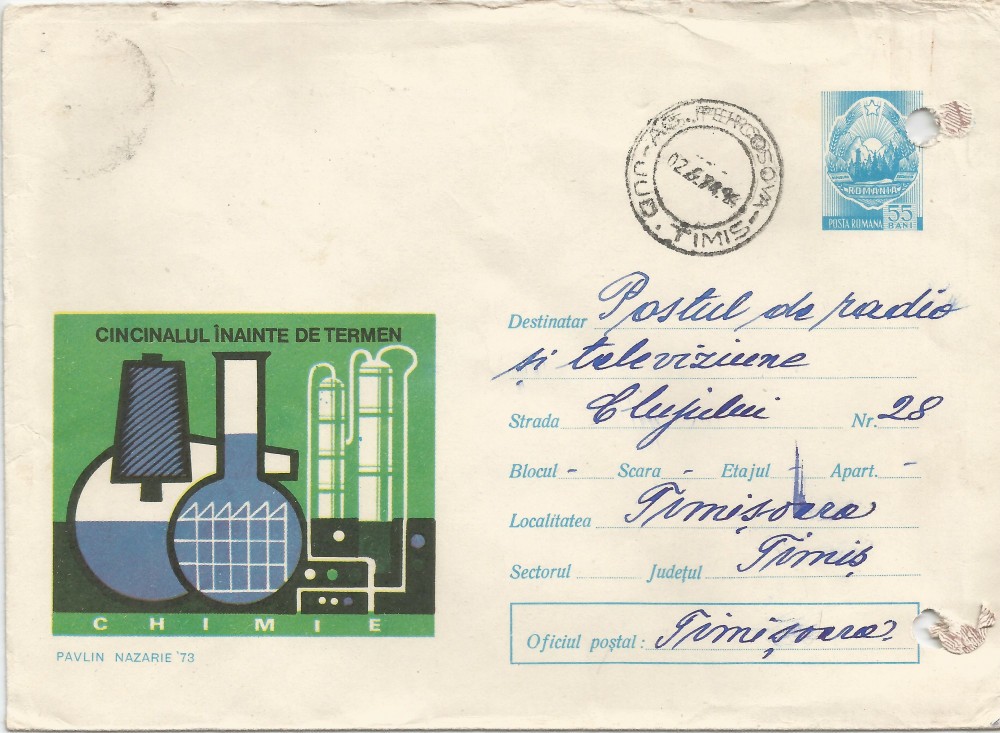 AG. PERCOSOVA - TIMIS
ROMANIA
POSTA ROMANA 55 BANI
CINCINALUL ÎNAINTE DE TERMEN
CHIMIE
PAVLIN NAZARIE '73
Destinatar Postul de radio
și televiziune
Strada Clujului Nr. 28
Blocul - Scara - Etajul - Apart. -
Localitatea Timișoara
Sectorul Județul Timiș
Oficiul poștal: Timișoara